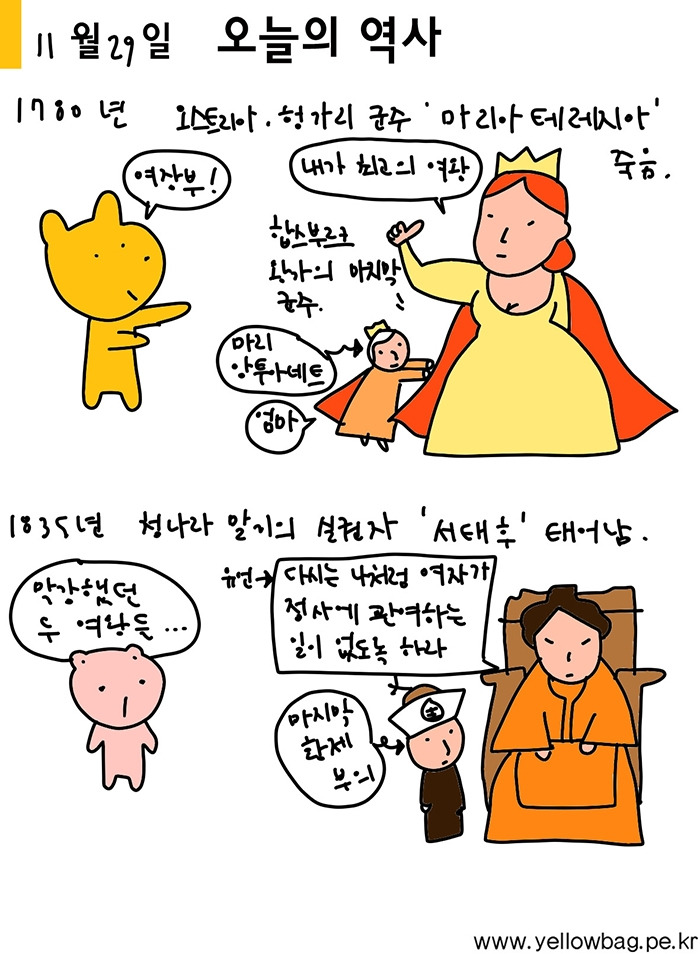 11월 29일 오늘의 역사
1780년 오스트리아·헝가리 군주 '마리아 테레지아'
죽음.
여장부!
내가 최고의 여왕
합스부르크
왕가의 마지막
군주.
마리
앙투아네트
엄마
1835년 청나라 말기의 실권자 '서태후' 태어남.
막강했던
두 여왕들...
유언→
다시는 나처럼 여자가
정사에 관여하는
일이 없도록 하라
마지막
황제
부의
www.yellowbag.pe.kr